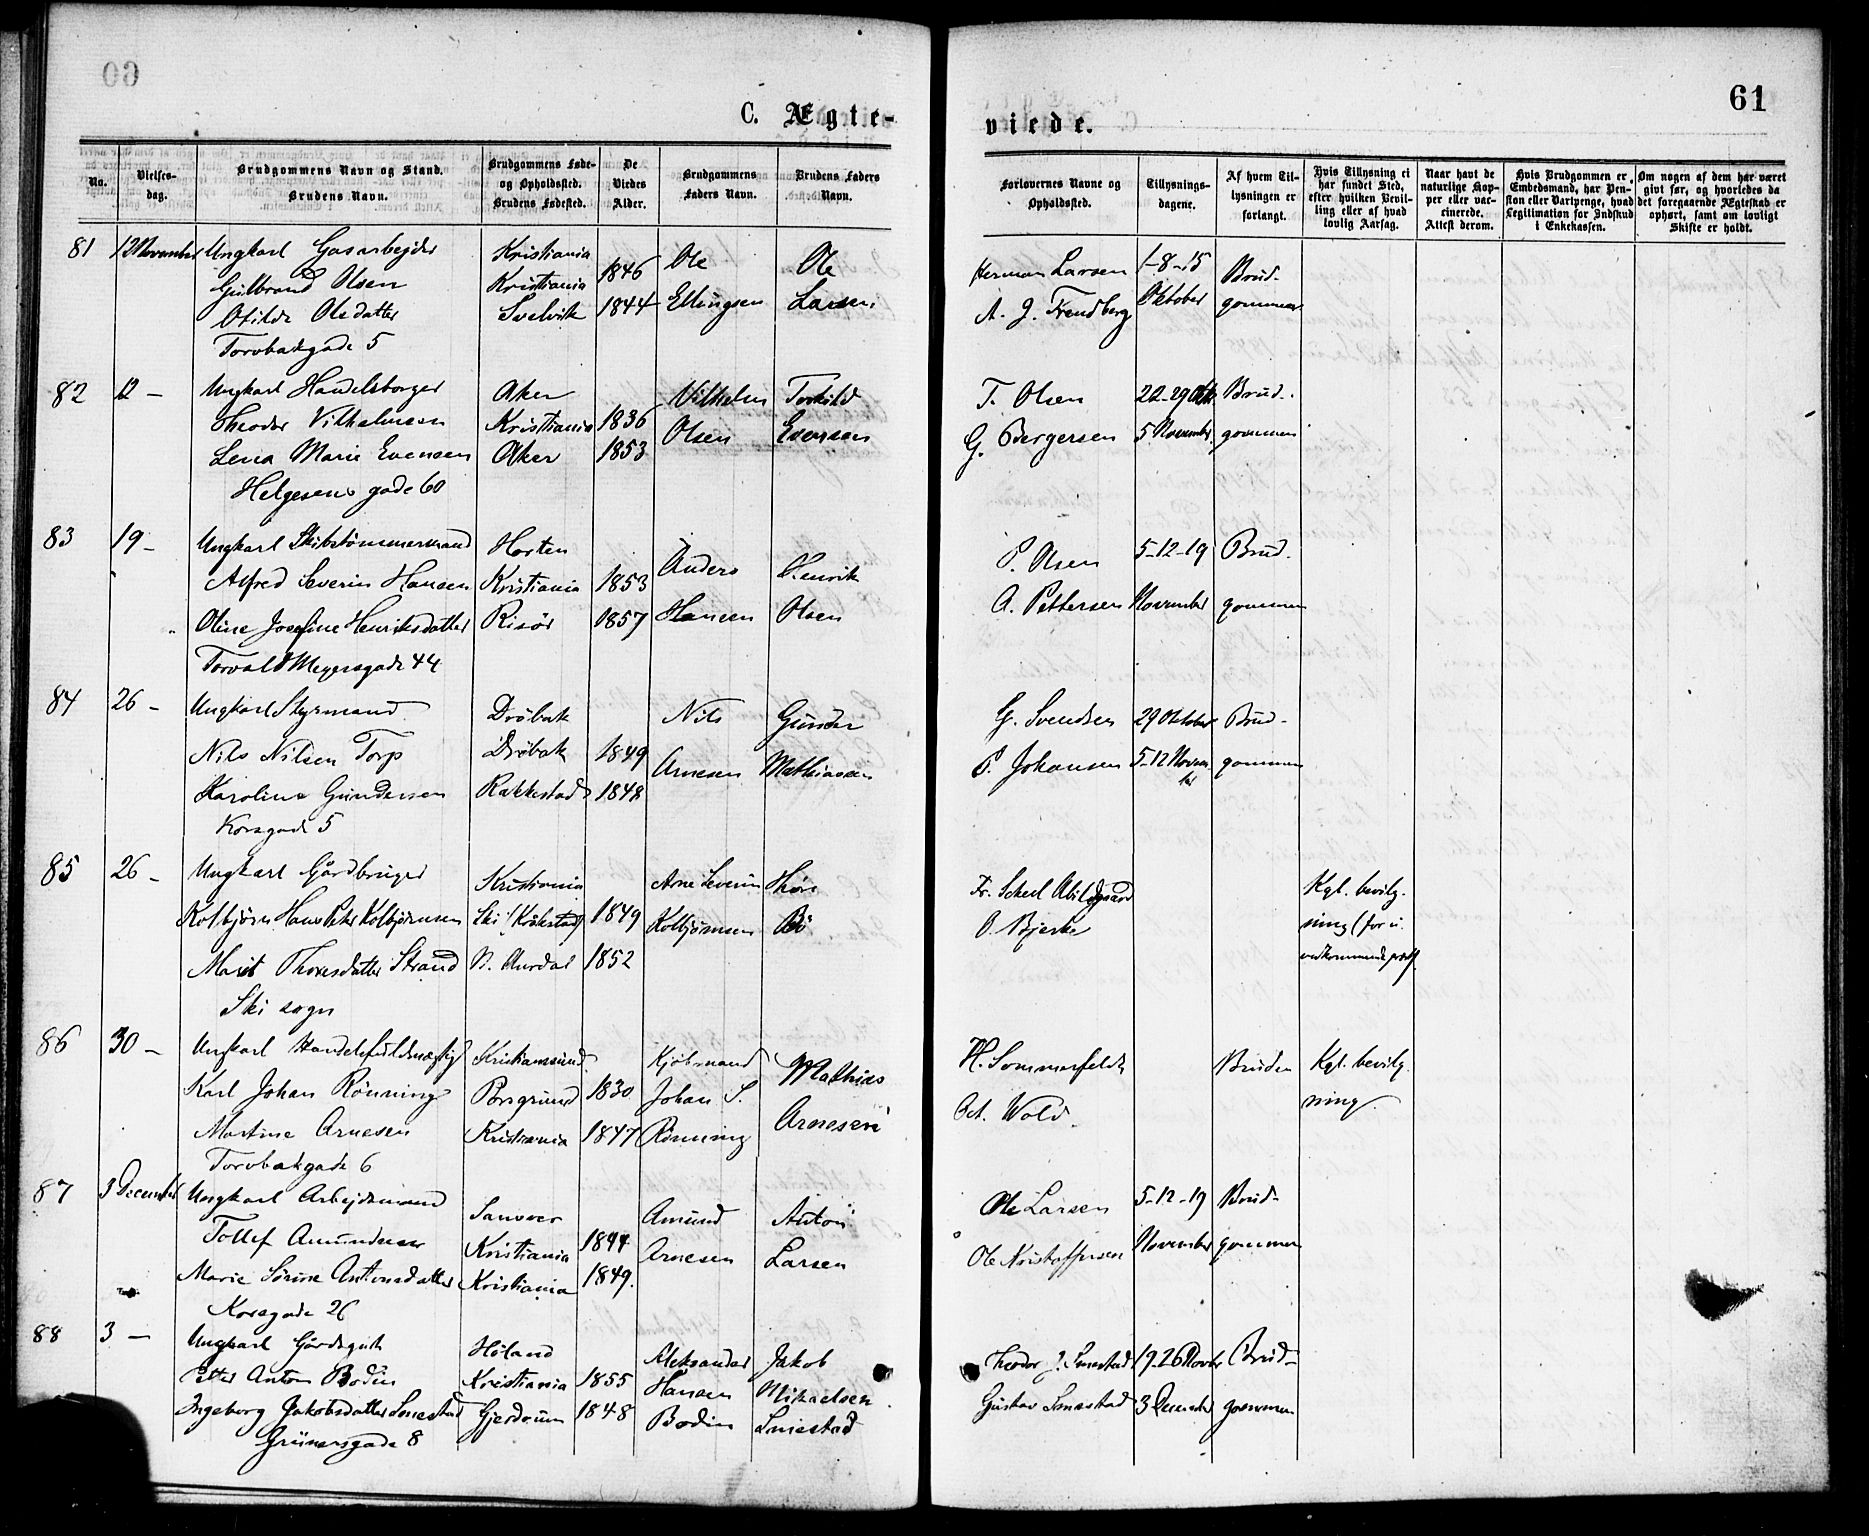 60
C. Ægte-
No.
Vielses-
dag.
Brudgommens Navn og Stand.
Brudens Navn.
Brudgommens Føde-
og Opholdssted.
Brudens Fødested.
De
Viedes
Alder.
Brudgommens
Faders Navn.
Brudens Faders
Navn.
81 12 November Ungkarl Gasarbejder Kristiania Ole Ole
Gulbrand Olsen Kristiania 1846
Otilde Oledatter Svelvik 1844 Ellingsen Larsen
Torvbakgade 5
82 12 – Ungkarl Handelsborger Aker Vilhelm Torkild
Theodor Vilhelmsen Kristiania 1836 Olsen Evensen
Lena Marie Evensen Aker 1853
Helgesens gade 60
83 19 – Ungkarl Skibstømmermand Horten Anders Henrik
Alfred Severin Hansen Kristiania 1853
Oline Josefine Henriksdatter Risör 1857 Hansen Olsen
Torvald Meyersgade 44
84 26 – Ungkarl Styrmand Dröbak Nils Gunder
Nils Nilsen Torp Dröbak 1849 Arnesen Mathiassen
Karoline Gundersen Rakkestad 1848
Korsgade 5
85 26 – Ungkarl Gårdbruger Kristiania Arne Severin
Kolbjörn Hans Peter Kolbjörnsen Ski 1849 Kolbjörnsen Bö
Marit Thoresdatter Strand N. Aurdal 1852
Ski sogn
86 30 – Ungkarl Handelsfuldmægtig Kristiansund Kjöbmand Mathias
Karl Johan Rönning Porsgrund 1830 Johan S. Arnesen
Martine Arnesen Kristiania 1847 Rönning
Torvbakgade 6
87 3 December Ungkarl Arbejdsmand Amund Anton
Tollef Amundsen Kristiania 1844 Arnesen Larsen
Marie Sörine Antonsdatter Kristiania 1849.
Korsgade 26
88 3 – Ungkarl Gårdsgut Höland Aleksander Jakob
Petter Anton Bodin Kristiania 1855 Hansen Mikaelsen
Ingeborg Jakobsdatter Smestad Gjerdrum 1848 Bodin Smestad
Grünersgade 8
61
viede.
Forlovernes Navne og
Opholdssted.
Tillysnings-
dagene.
Af hvem Til-
lysningen er
forlangt.
Hvis Tillysning ei
har fundet Sted,
efter hvilken Bevil-
ling eller af hvad
lovlig Aarsag.
Naar havt de
naturlige Kop-
per eller vac-
cinerede.
Attest derom.
Hvis Brudgommen er
Embedsmand, har Pen-
sion eller Vartpenge, hvad
Legitimation for Indskud
i Enkekassen.
Om nogen af dem har været
givt før, og hvorledes da
det foregaaende Ægteskab er
ophørt, samt om lovligt
Skifte er holdt.
Herman Larsen 1–8–15 Brud-
A. J. Trendberg Oktober gommen
T. Olsen 22–29 Okt. Brud-
G. Bergersen 5 November gommen
P. Olsen 5–12–19 Brud-
A. Pettersen November gommen
G. Svendsen 29 Oktober Brud-
P. Johansen 5–12 Novem-ber gommen
Fr. Scheel Abildgaard Kgl. bevilg-
O. Bjerke ning (for u-
vedkommende præst)
H. Sommerfeldt Bruden Kgl. bevilg-
Oct. Wold. ning.
Ole Larsen 5–12–19 Brud-
Ole Kristoffersen November gommen
Theodor J. Smestad 19–26 Novbr Brud-
Gustav Smestad 3 December gommen